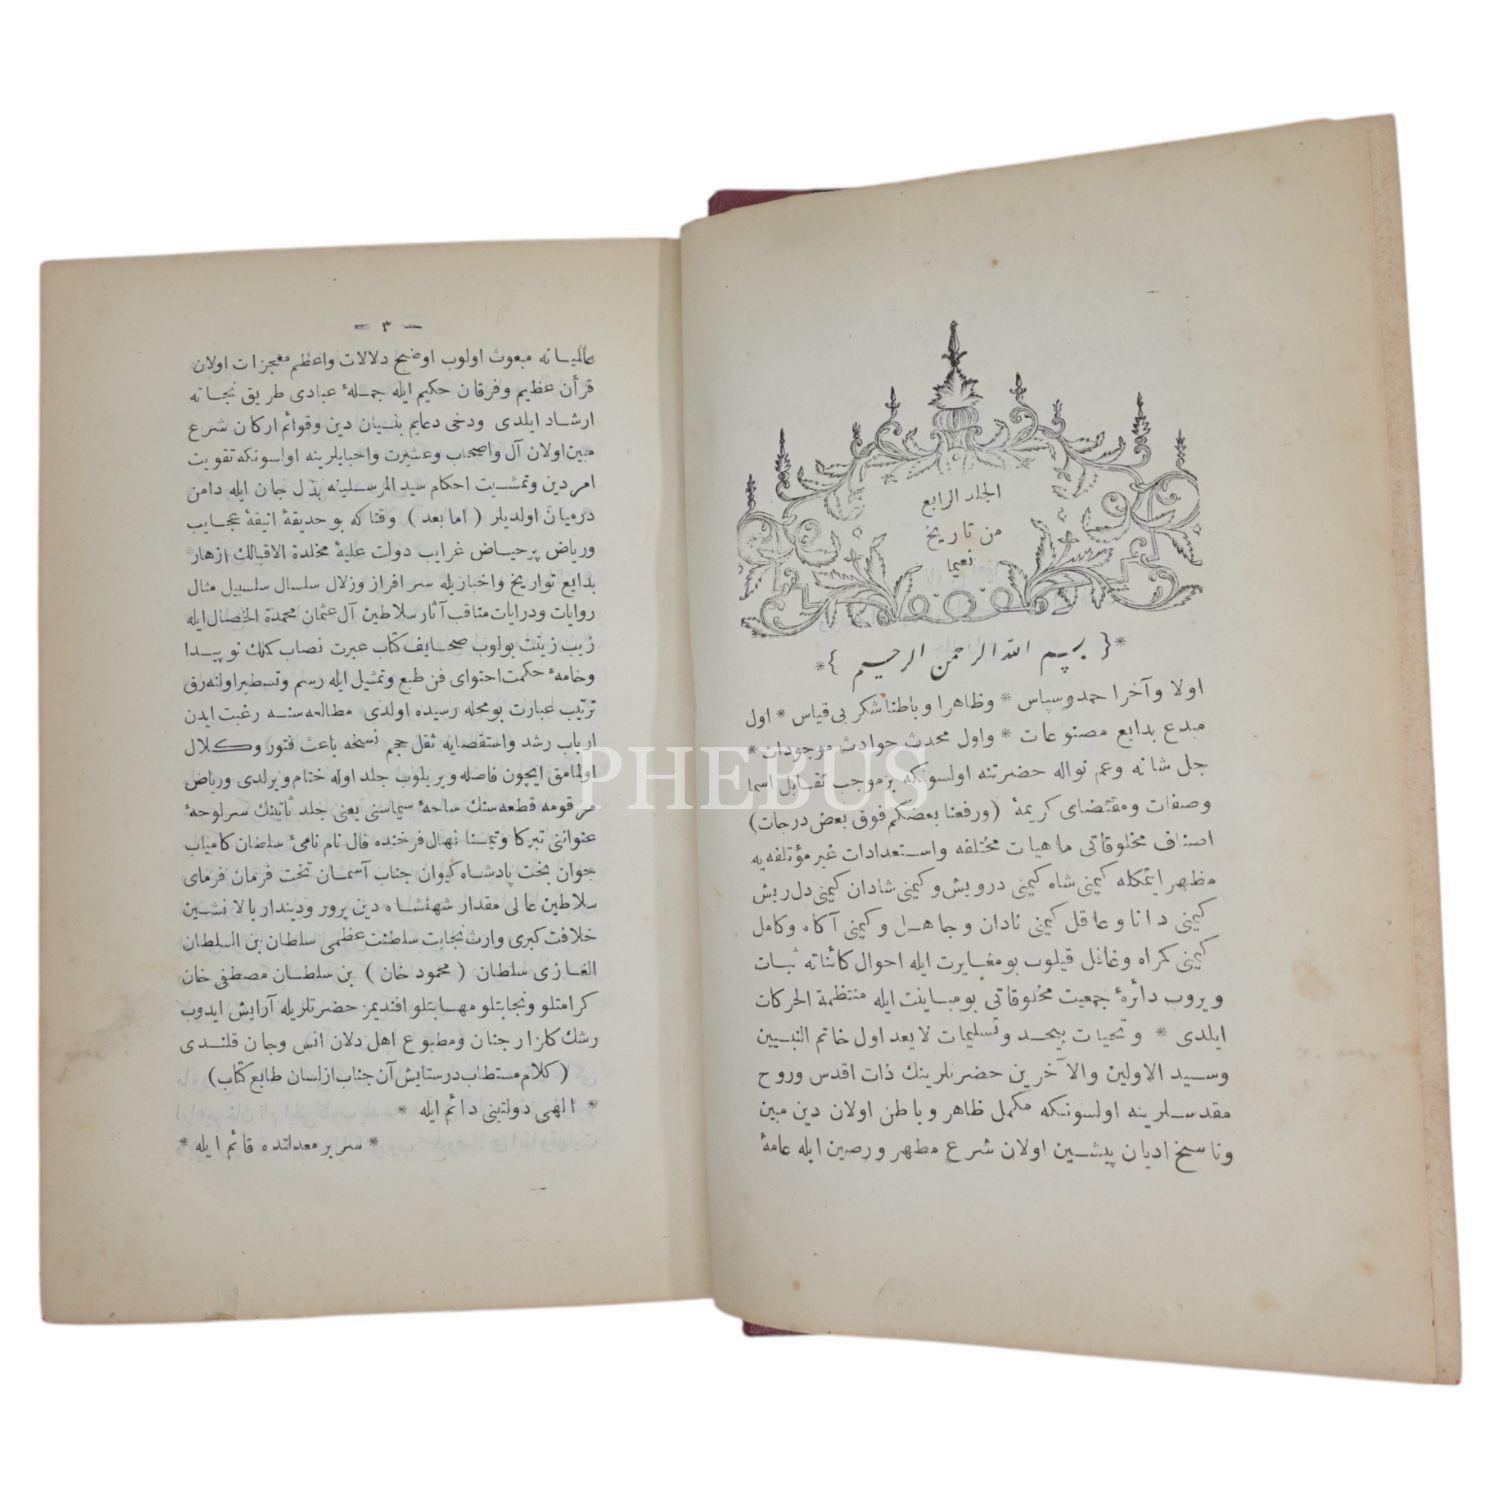 الجلد الرابع
من تاريخ
نعيما
*{ بسم الله الرحمن الرحيم }*
اولا وآخرا حمد وسپاس * وظاهرا وباطنا شكر بى قياس * اول
مبدع بدايع مصنوعات * واول محدث حوادث موجودات *
جل شانه وعم نواله حضرتنه اولسونكه برموجب تقابل اسما
وصفات ومقتضاى كريمۀ (ورفعنا بعضكم فوق بعض درجات)
اصناف مخلوقاتى ماهيات مختلفه واستعدادات غير مؤتلفه يه
مظهر ايتمكله كيمنى شاه كيمنى درويش وكيمنى شادان كيمنى دل ريش
كيمنى دانا وعاقل كيمنى نادان وجاهل وكيمنى آكاه وكامل
كيمنى كمراه وغافل قيلوب بومغايرت ايله احوال كائناته ثبات
ويروب دائرۀ جمعيت مخلوقاتى بومباينت ايله منتظمة الحركات
ايلدى * وتحيات بيحد وتسليمات لايعد اول خاتم النبيين
وسيد الاولين والآخرين حضرتلرينك ذات اقدس وروح
مقدسلرينه اولسونكه مكمل ظاهر وباطن اولان دين مبين
وناسخ اديان پيشين اولان شرع مطهر ورصين ايله عامۀ
— ٣ —
عالميانه مبعوث اولوب اوضح دلالات واعظم معجزات اولان
قرآن عظيم وفرقان حكيم ايله جملۀ عبادى طريق نجاته
ارشاد ايلدى ودخى دعايم بنيان دين وقوائم اركان شرع
مبين اولان آل واصحاب وعشيرت واحبابلرينه اولسونكه تقويت
امر دين وتمشيت احكام سيد المرسلينه بذل جان ايله دامن
درميان اولديلر (اما بعد) وقتا كه بو حديقۀ انيقۀ عجايب
ورياض پرحياض غرايب دولت عليۀ مخلدة الاقبالك ازهار
بدايع تواريخ واخباريله سر افراز وزلال سلسال سلسبيل مثال
روايات ودرايات مناقب آثار سلاطين آل عثمان محمدة الخصال ايله
زيب زينت بولوب صحايف كتاب عبرت نصاب كلك نو پيدا
وخامۀ حكمت احتواى فن طبع وتمثيل ايله رسم وتسطير اولنه رق
ترتيب عبارت بومحله رسيده اولدى مطالعه سنه رغبت ايدن
ارباب رشد واستقصايه ثقل حجم نسخه باعث فتور وكلال
اولمامق ايچون فاصله ويريلوب جلد اوله ختام ويرلدى ورياض
مرقومه قطعه سنك ساحۀ سيماسنى يعنى جلد ثانينك سرلوحۀ
عنواننى تبركا وتيمنا نهال فرخنده فال نام نامئ سلطان كامياب
جوان بخت پادشاه كيوان جناب آسمان تخت فرمان فرماى
سلاطين عالى مقدار شهنشاه دين پرور وديندار بالانشين
خلافت كبرى وارث نجابت سلطنت عظمى سلطان بن السلطان
الغازى سلطان (محمود خان) بن سلطان مصطفى خان
كرامتلو ونجابتلو مهابتلو افنديمز حضرتلريله آرايش ايدوب
رشك كلزار جنان ومطبوع اهل دلان انس وجان قلندى
(كلام مستطاب درستايش آن جناب ازلسان طابع كتاب)
* الهى دولتينى دائم ايله *
* سرير معدلتده قائم ايله *
PHEBUS